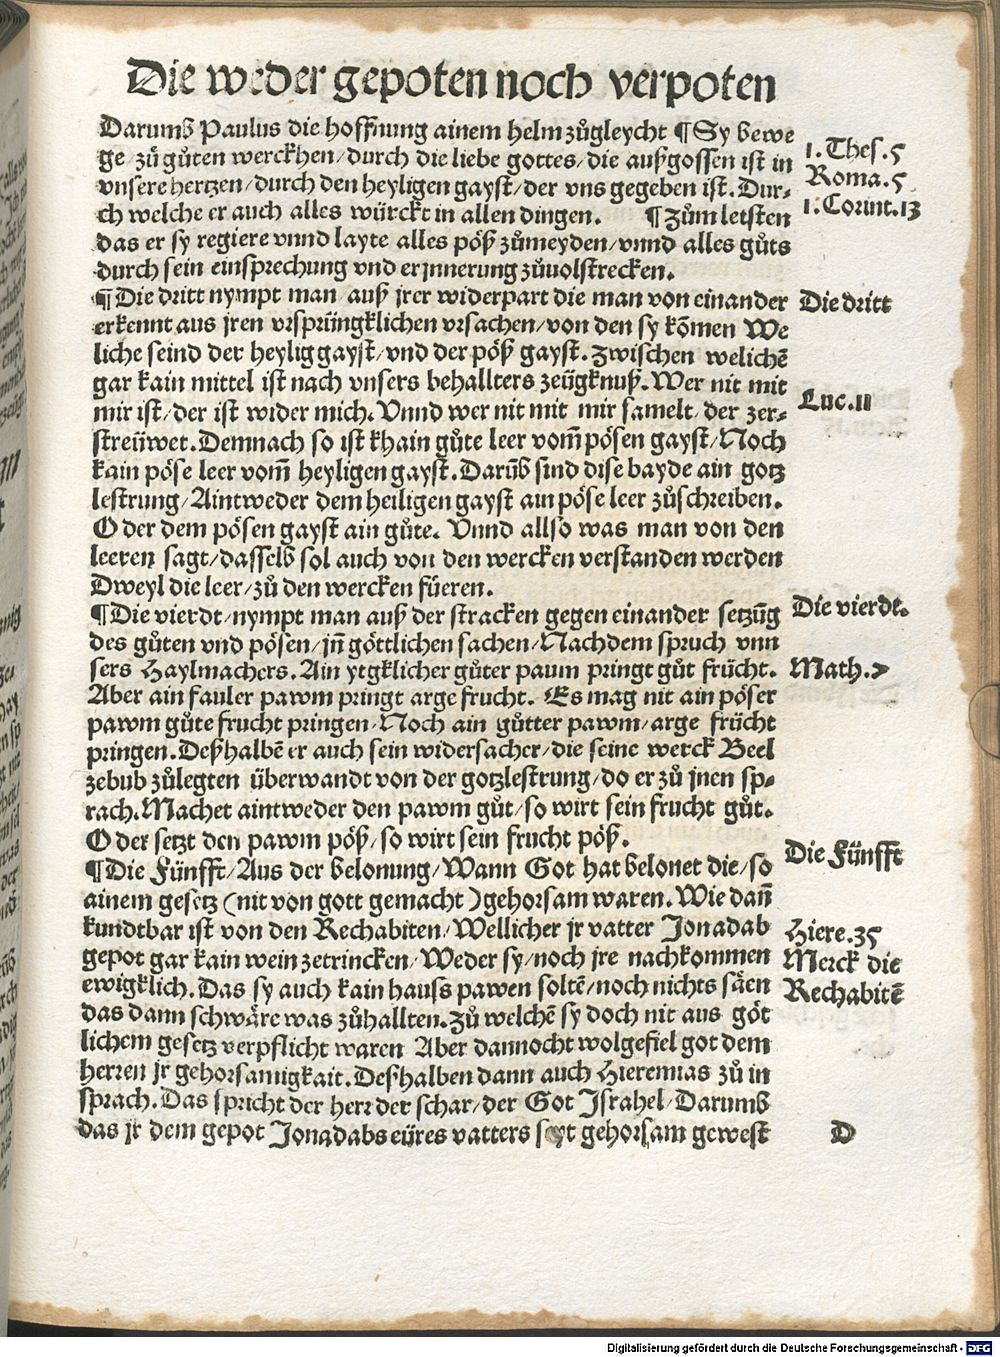 Die weder gepoten noch verpoten
Darumb Paulus die hoffnung ainem helm zůgleycht ¶ Sy bewe
ge zů gůten werckhen/durch die liebe gottes/die außgossen ist in
vnsere hertzen/durch den heyligen gayst/der vns gegeben ist. Dur-
ch welche er auch alles würckt in allen dingen. ¶ Zům letsten
das er sy regiere vnnd layte alles pöß zůmeyden/vnnd alles gůts
durch sein einsprechung vnd erjnnerung zůuolstrecken.
1. Thes. 5
Roma. 5
1. Corint. 13
¶ Die dritt nympt man auß jrer widerpart die man von einander
erkennt aus jren vrsprüngklichen vrsachen/von den sy kömen We
liche seind der heylig gayst/vnd der pöß gayst. Zwischen welichē
gar kain mittel ist nach vnsers behallters zeügknuß. Wer nit mit
mir ist/der ist wider mich. Vnnd wer nit mit mir samelt/der zer-
streüwet. Demnach so ist khain gůte leer vom̄ pösen gayst/Noch
kain pöse leer vom̄ heyligen gayst. Darūb sind dise bayde ain gotz
lestrung/Aintweder dem heiligen gayst ain pöse leer zůschreiben.
Oder dem pösen gayst ain gůte. Vnnd allso was man von den
leeren sagt/dasselb sol auch von den wercken verstanden werden
Dweyl die leer/zů den wercken füeren.
Die dritt
Luc. 11
¶ Die vierdt/nympt man auß der stracken gegen einander setzūg
des gůten vnd pösen/jn̄ göttlichen sachen/Nachdem spruch vnn
sers Haylmachers. Ain ytgklicher gůter paum pringt gůt frücht.
Aber ain fauler pawm pringt arge frucht. Es mag nit ain pöser
pawm gůte frucht pringen/Noch ain gůtter pawm/arge frücht
pringen. Deßhalbē er auch sein widersacher/die seine werck Beel
zebub zůlegten überwandt von der gotzlestrung/do er zů jnen sp-
rach. Machet aintweder den pawm gůt/so wirt sein frucht gůt.
Oder setzt den pawm pöß/so wirt sein frucht pöß.
Die vierdt.
Math. 7
¶ Die Fünfft/Aus der belonung/Wann Got hat belonet die/so
ainem gesetz (nit von gott gemacht) gehorsam waren. Wie dan̄
kundtbar ist von den Rechabiten/Wellicher jr vatter Jonadab
gepot gar kain wein zetrincken/Weder sy/noch jre nachkommen
ewigklich. Das sy auch kain hauss pawen soltē/noch nichts säen
das dann schwäre was zůhallten. Zů welchē sy doch nit aus göt
lichem gesetz verpflicht waren Aber dannocht wolgefiel got dem
herren jr gehorsamigkait. Deßhalben dann auch Hieremias zů in
sprach. Das spricht der herr der schar/der Got Israhel/Darumb
das jr dem gepot Jonadabs eüres vatters seyt gehorsam gewest
Die Fünfft
Hiere. 35
Merck die
Rechabitē
D
Digitalisierung gefördert durch die Deutsche Forschungsgemeinschaft - DFG